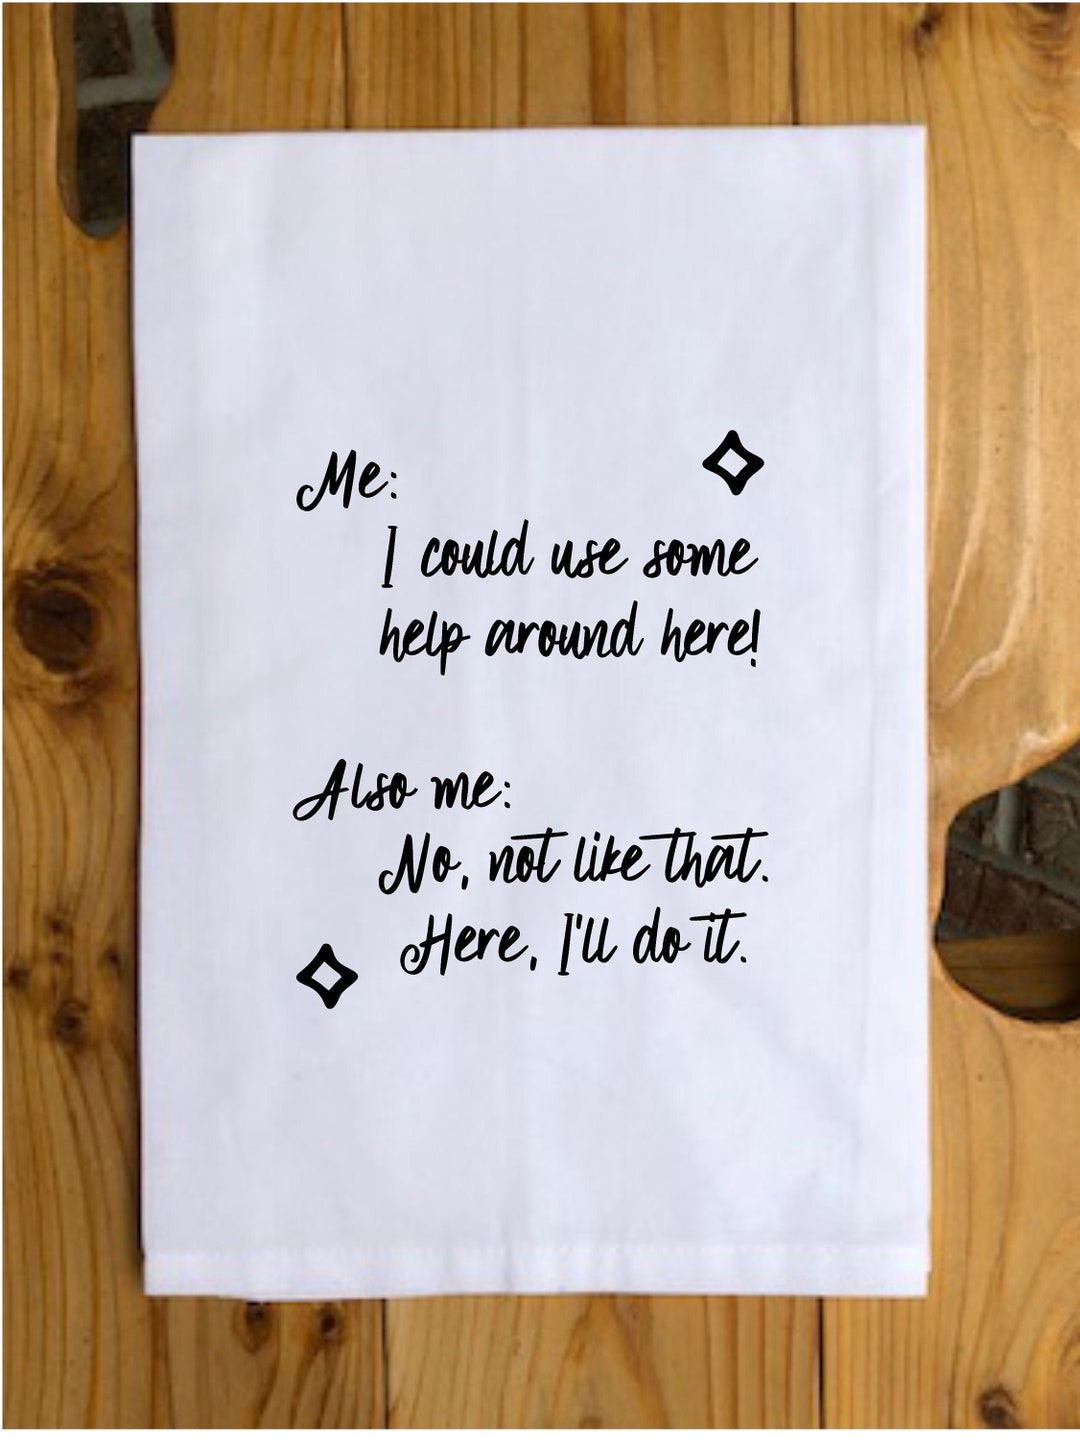 Me:
I could use some
help around here!
Also me:
No, not like that.
Here, I'll do it.